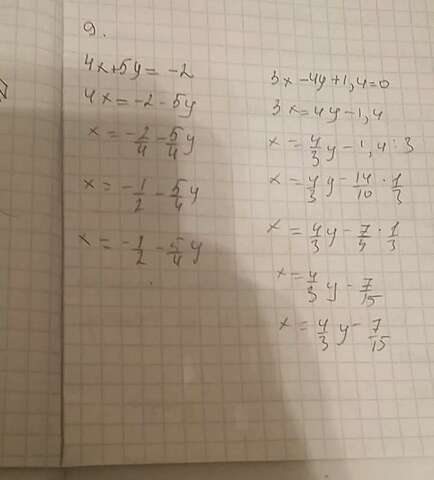 9.
4x+5y=-2
4x=-2-5y
x=-2/4-5/4y
x=-1/2-5/4y
x=-1/2-5/4y
3x-4y+1,4=0
3x=4y-1,4
x=4/3y-1,4:3
x=4/3y-14/10·1/3
x=4/3y-7/5·1/3
x=4/3y-7/15
x=4/3y-7/15